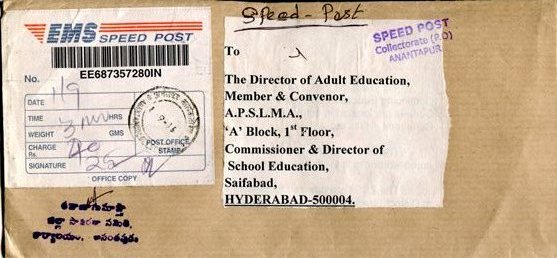 Speed - Post
EMS SPEED POST
EE687357280IN
No.
DATE 1/9
TIME HRS
WEIGHT GMS
CHARGE
Rs.
SIGNATURE
POST OFFICE
STAMP
OFFICE COPY
SPEED POST
Collectorate (P.O)
ANANTAPUR
To
The Director of Adult Education,
Member & Convenor,
A.P.S.L.M.A.,
'A' Block, 1st Floor,
Commissioner & Director of
School Education,
Saifabad,
HYDERABAD-500004.
జిల్లా సాక్షరతా సమితి,
కార్యాలయం, అనంతపురం